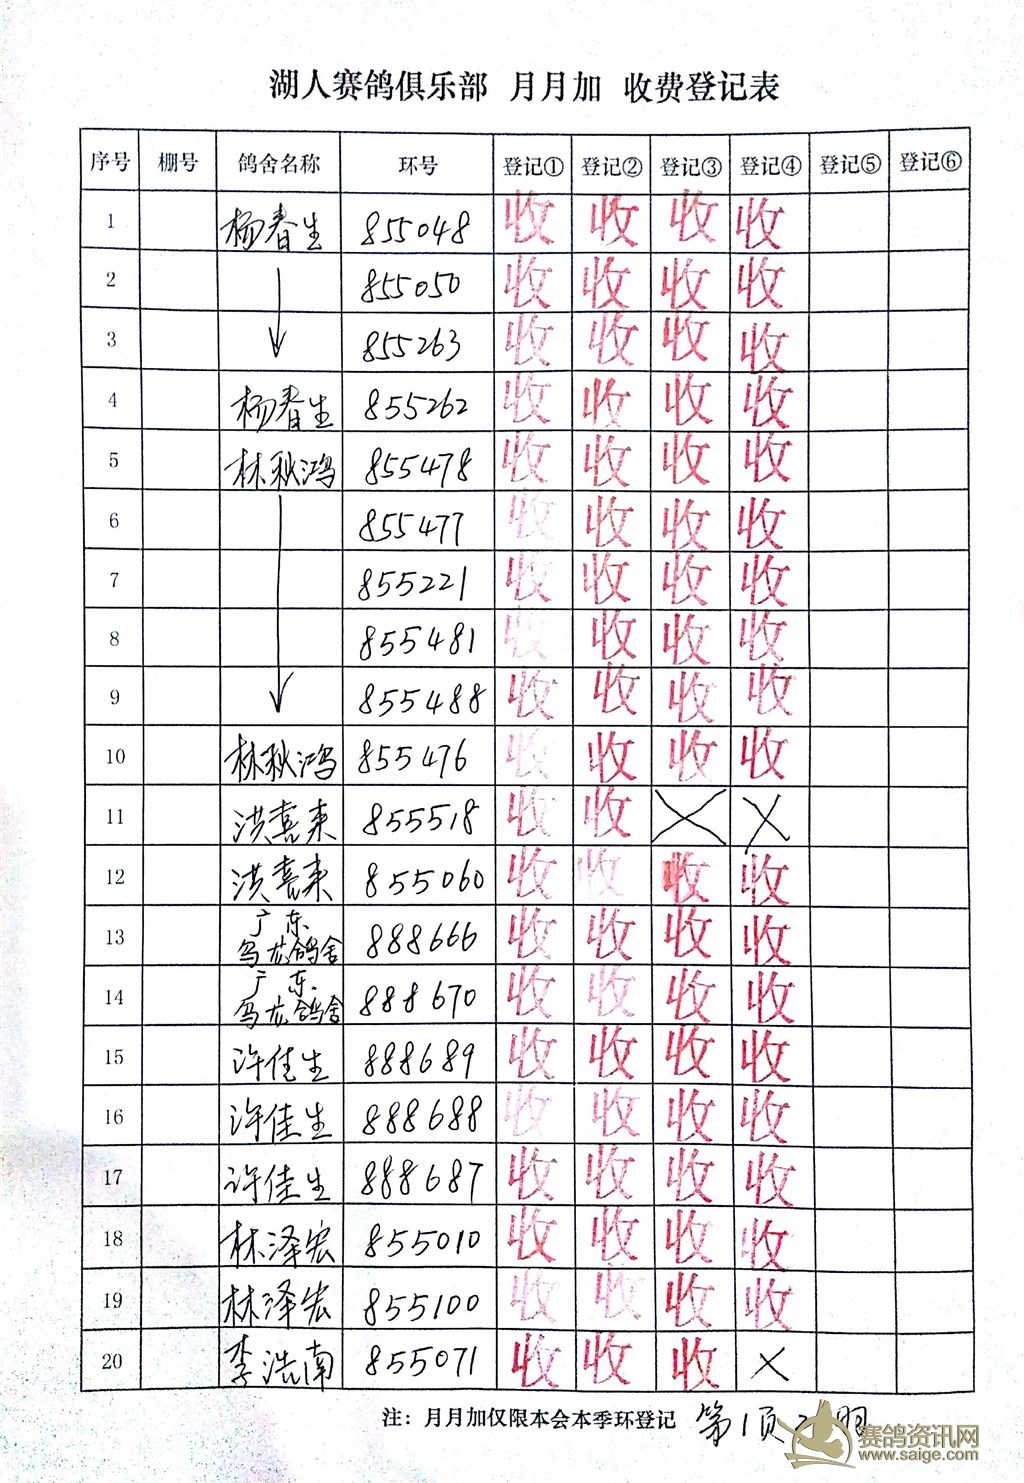 湖人赛鸽俱乐部 月月加 收费登记表
序号 棚号 鸽舍名称 环号 登记① 登记② 登记③ 登记④ 登记⑤ 登记⑥
1 杨春生 855048 收 收 收 收
2 855050 收 收 收 收
3 855263 收 收 收 收
4 杨春生 855262 收 收 收 收
5 林秋鸿 855478 收 收 收 收
6 855477 收 收 收 收
7 855221 收 收 收 收
8 855481 收 收 收 收
9 855488 收 收 收 收
10 林秋鸿 855476 收 收 收 收
11 洪喜来 855518 收 收 × ×
12 洪喜来 855060 收 收 收 收
13 广东乌龙鸽舍 888666 收 收 收 收
14 广东乌龙鸽舍 888670 收 收 收 收
15 许佳生 888689 收 收 收 收
16 许佳生 888688 收 收 收 收
17 许佳生 888687 收 收 收 收
18 林泽宏 855010 收 收 收 收
19 林泽宏 855100 收 收 收 收
20 李浩南 855071 收 收 收 ×
注：月月加仅限本会本季环登记 第1页
赛鸽资讯网
www.saige.com